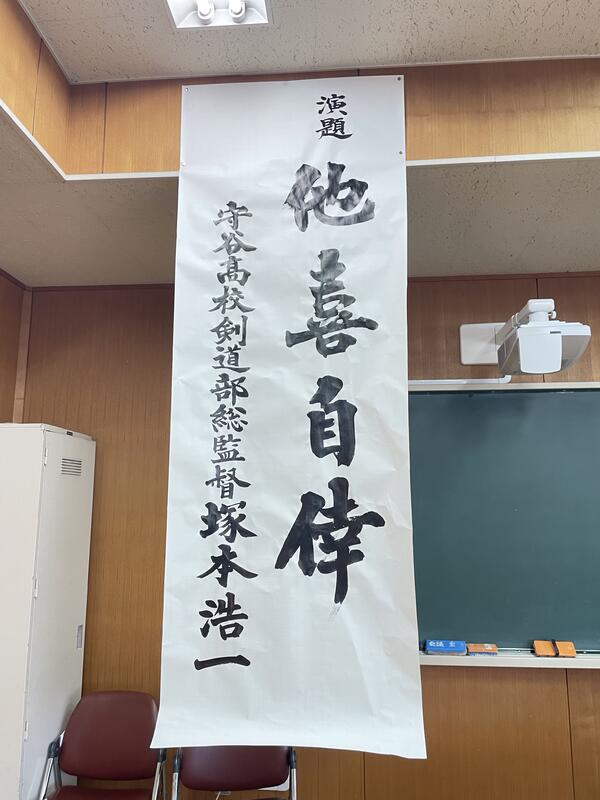 演題
他喜自倖
守谷髙校剣道部総監督塚本浩一